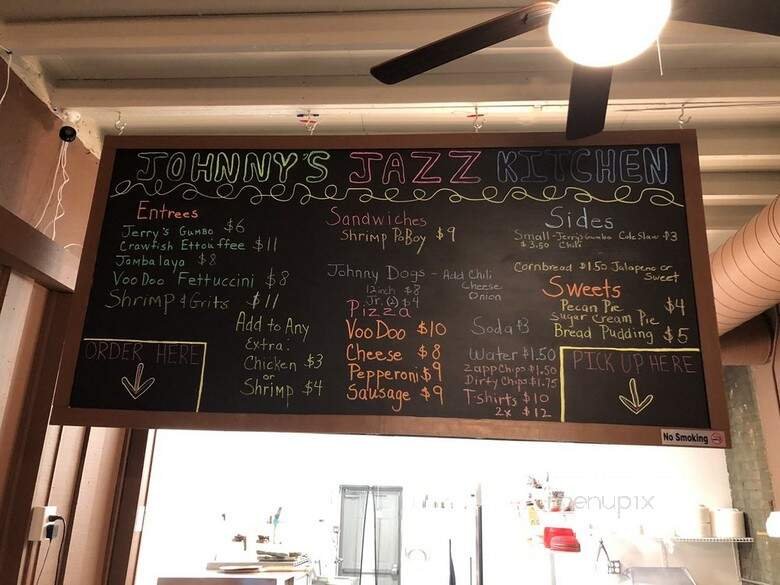 JOHNNY'S JAZZ KITCHEN
Entrees
Jerry's Gumbo $6
Crawfish Ettouffee $11
Jambalaya $8
Voo Doo Fettuccini $8
Shrimp & Grits $11
Add to Any
Extra:
Chicken $3
or
Shrimp $4
ORDER HERE
Sandwiches
Shrimp PoBoy $9
Johnny Dogs - Add Chili
Cheese
Onion
12inch $8
Jr. (2) $4
Pizza
Voo Doo $10
Cheese $8
Pepperoni $9
Sausage $9
Sides
Small-Jerry's Gumbo Cole Slaw $3
$3.50 Chili
Cornbread $1.50 Jalapeno or
Sweet
Sweets
Pecan Pie $4
Sugar Cream Pie
Bread Pudding $5
Soda $3
Water $1.50
Zapp Chips $1.50
Dirty Chips $1.75
T-shirts $10
2x $12
PICK UP HERE
No Smoking
menupix